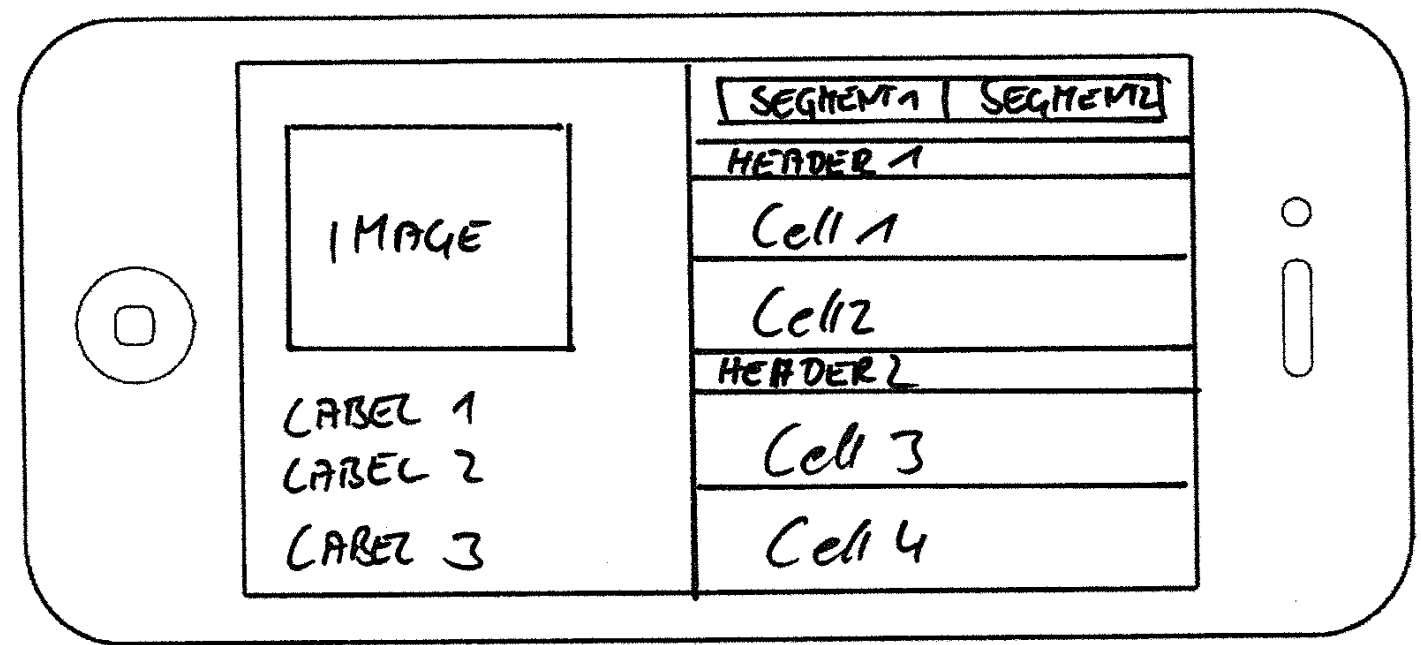 IMAGE
LABEL 1
LABEL 2
LABEL 3
SEGMENT1 SEGMENT2
HEADER 1
Cell 1
Cell 2
HEADER 2
Cell 3
Cell 4